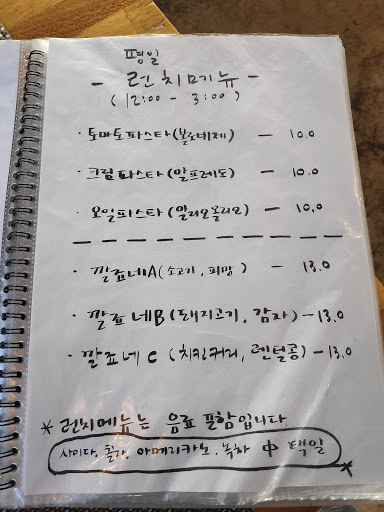 평일
- 런치메뉴 -
(12:00 - 3:00)
· 토마토파스타(볼로네제) - 10.0
· 크림파스타(알프레도) - 10.0
· 오일파스타(알리오올리오) - 10.0
· 깔쬬네A(소고기, 피망) - 13.0
· 깔쬬네B(돼지고기, 감자) - 13.0
· 깔쬬네C (치킨커리, 렌틸콩) - 13.0
* 런치메뉴는 음료 포함입니다.
사이다, 콜라, 아메리카노, 녹차 中 택일
*